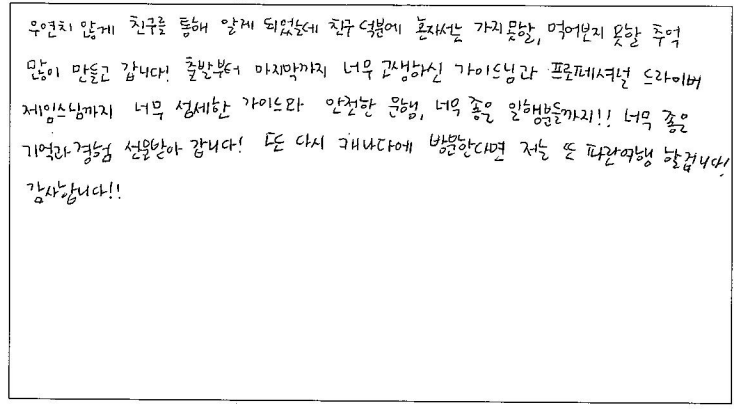 우연치 않게 친구를 통해 알게 되었는데 친구 덕분에 혼자서는 가지못할, 먹어보지 못할 추억
많이 만들고 갑니다! 출발부터 마지막까지 너무 고생하신 가이드님과 프로페셔널 드라이버
제임스님까지 너무 섬세한 가이드와 안전한 운행, 너무 좋은 일행분들까지!! 너무 좋은
기억과 경험 선물받아 갑니다! 또 다시 캐나다에 방문한다면 저는 또 파란여행 할겁니다!
감사합니다!!